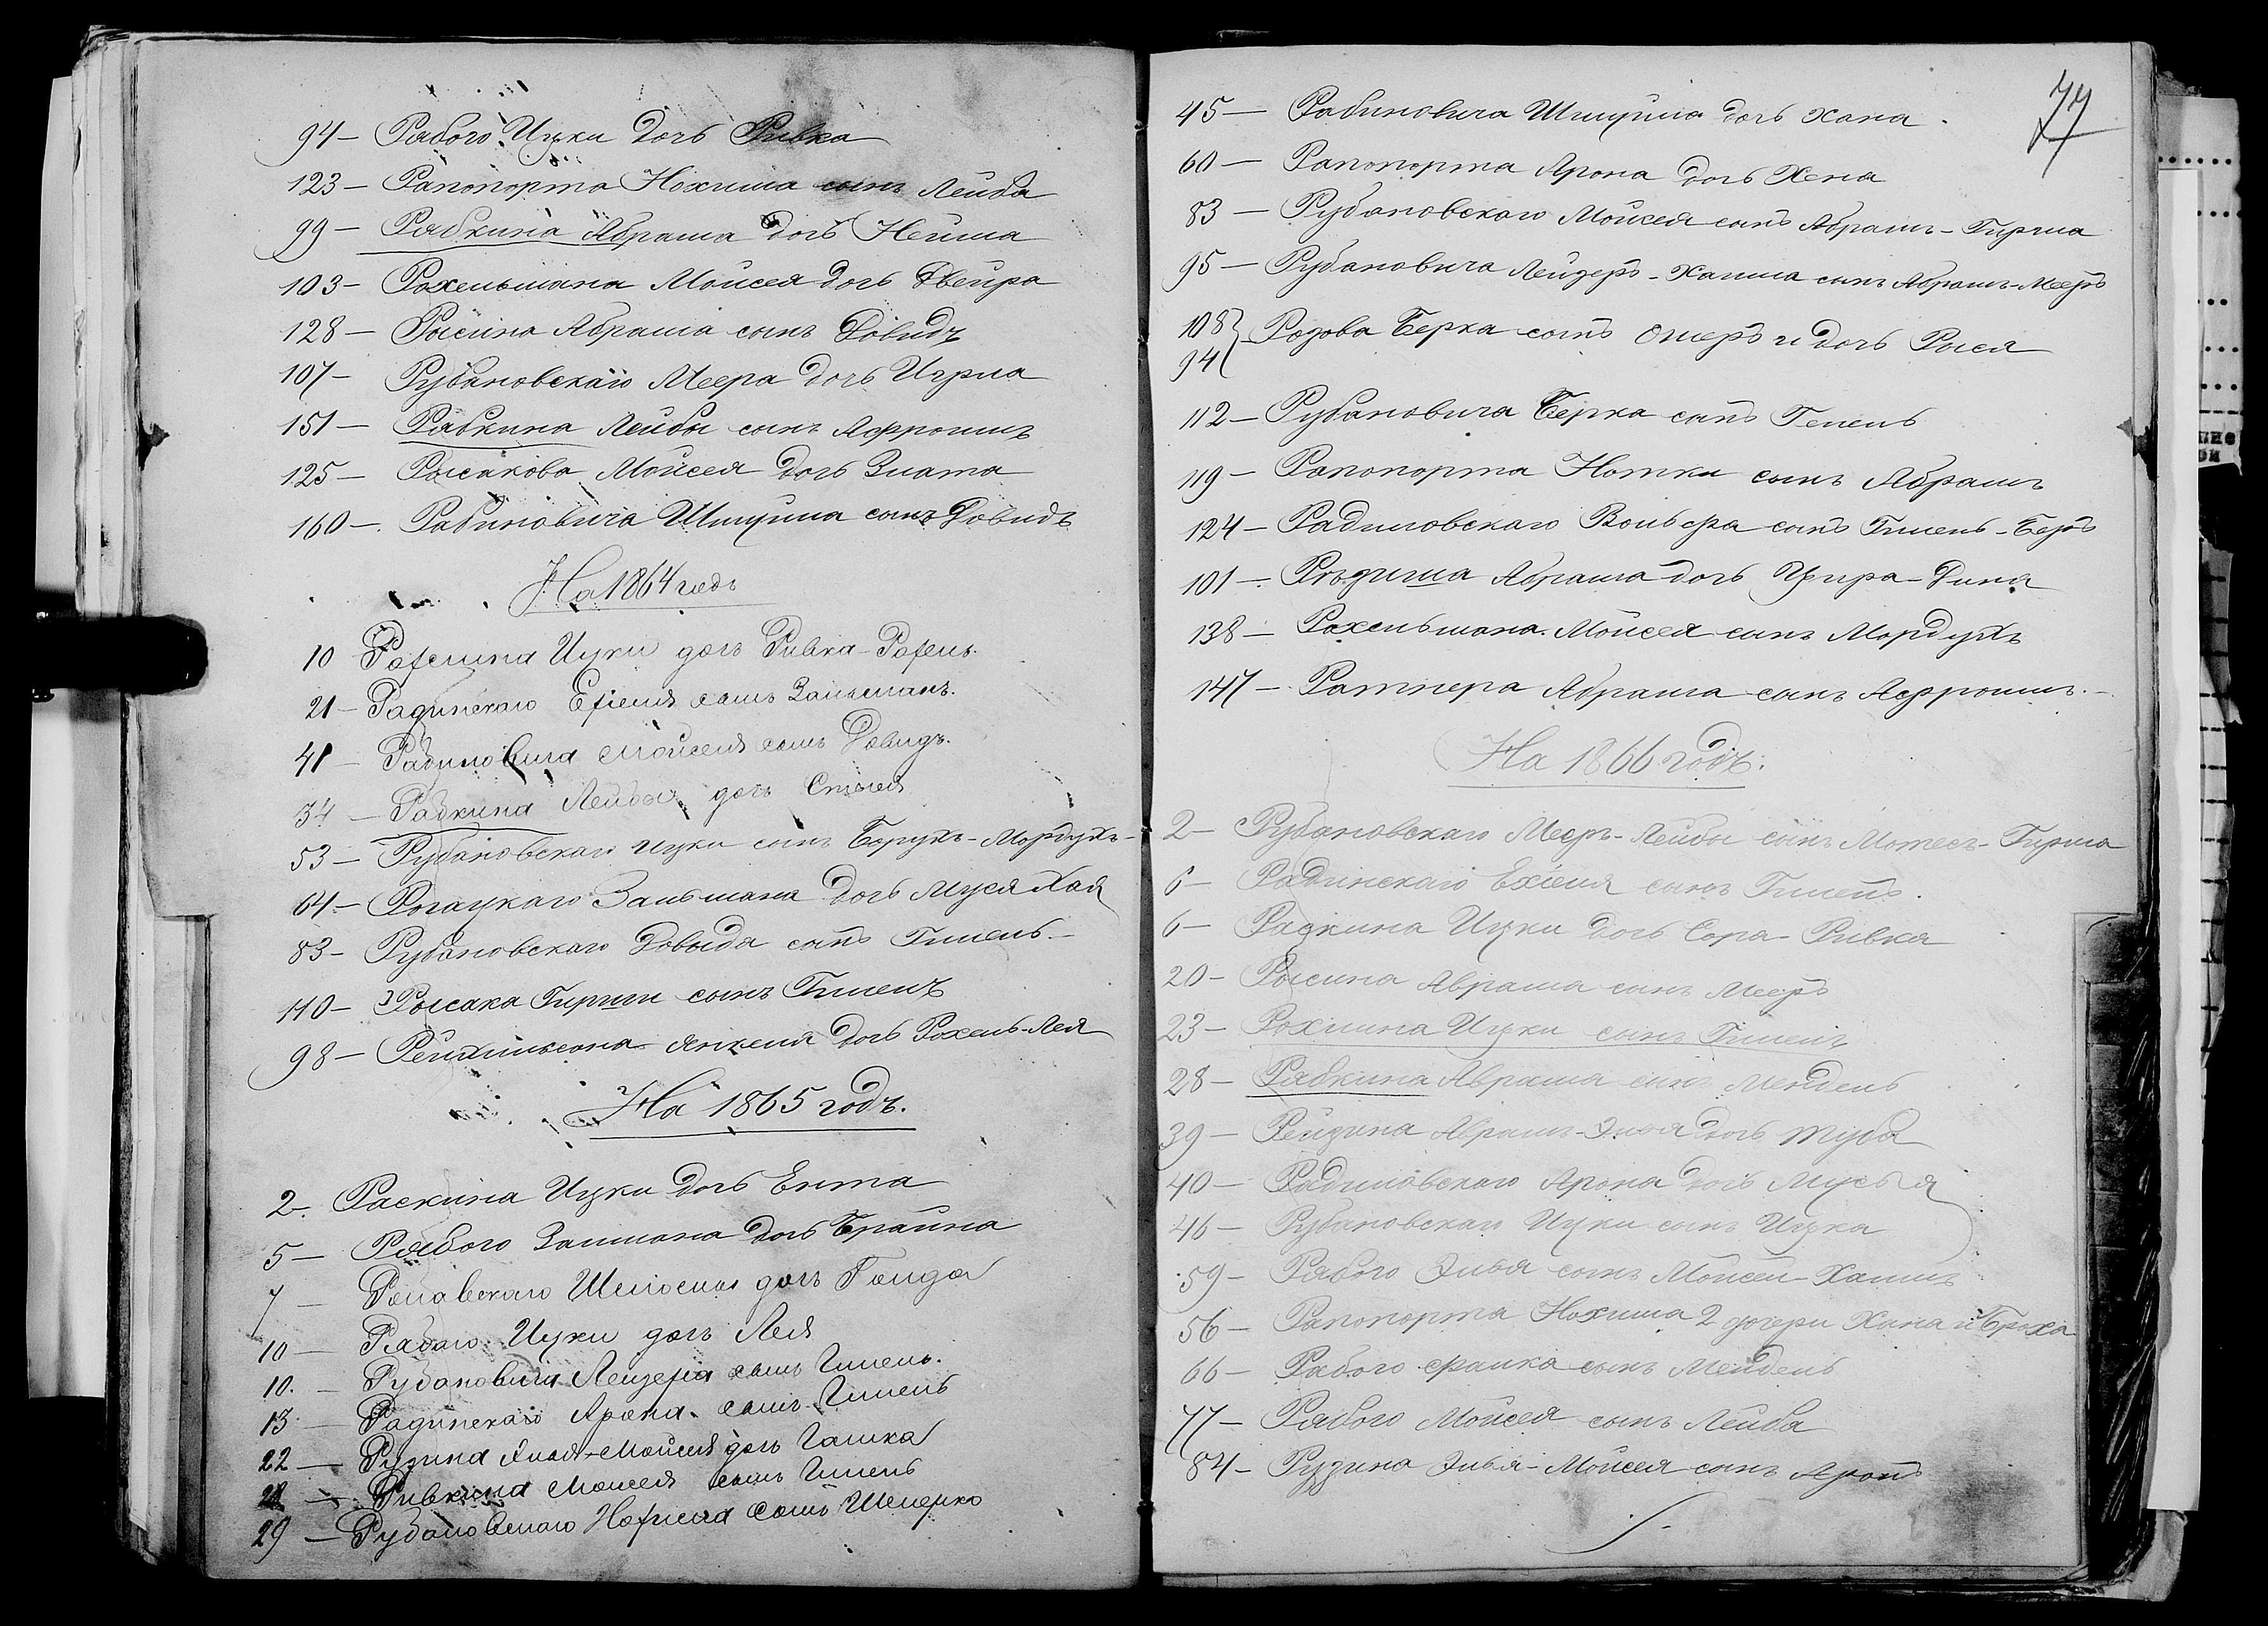 94 — Рабого Ицки дочь Ривка
123 — Рапопорта Нохима сынъ Лейба
99 — Рабкина Абрама дочь Нехама
103 — Рохельмана Мойсея дочь Двейра
128 — Рысина Абрама сынъ Довидъ
107 — Рубановскаго Меера дочь
151 — Рабкина Лейбы сынъ Афроимъ
125 — Рысакова Мойсея дочь Злата
160 — Рабиновича Шмуйла сынъ Довидъ
На 1864 годъ
10 Рохлина Ицки дочь Ривка-Рохель.
21 — Радинскаго Ехіеля сынъ Зальманъ.
41 — Рабиновича Мойсея сынъ Довидъ.
34 — Рабкина Лейбы дочь Стыся
53 — Рубановскаго Ицки сынъ Борухъ-Мордухъ —
64 — Рогацкаго Зальмана дочь Муся Хая
83 — Рубановскаго Довыда сынъ Гилель. —
110 — Рысака Гирши сынъ Гилелъ
98 — Рейхильсона Янкеля дочь Рохель-Лея
На 1865 годъ.
2 — Раскина Ицки дочь Ента
5 — Рабого Залмана дочь Брайна
7 — дочь
10 — Рабаго Ицки дочь Лея
10. — Рубановича Лейзера сынъ Гилель.
13 — Радинскаго Арона сынъ Гилель
22 — Рузина Эльи-Мойсея дочь Галка
28 — Ривкина Моисея сынъ Гилель
29 — Рубановскаго Нохима сынъ Шмерко
77
45 — Рабиновича Шмуйла дочь Хана.
60 — Рапопорта Арона дочь Хена
83 — Рубановскаго Мойсея сынъ Абрамъ-Гирша
95 — Рубановича Лейзеръ-Хаима сынъ Абрамъ-Мееръ
108 } 94 Родова Берка сынъ Омеръ и дочь Рыся
112 — Рубановича Берка сынъ Гепель
119 — Рапопорта Нотки сынъ Абрамъ
124 — Радиловскаго Вольфа сынъ Гилель-Беръ
101 — Абрама дочь Ципра-Дина
138 — Рохельмана Мойсея сынъ Мордухъ
147 — Ратнера Абрама сынъ Афроимъ. —
На 1866 годъ.
2 — Рубановскаго Мееръ-Лейбы сынъ Мотесъ-Гирша
6 — Радинскаго Ехіеля сынъ Гилель.
6 — Раскина Ицки дочь Сора-Ривка
20 — Рысина Аврама сынъ Мееръ
23 — Рохлина Ицки сынъ Гилелъ
28 — Рабкина Аврама сынъ Мендель
39 — Рейзина Аврамъ-Элья дочь Туба
40 — Радиловскаго Арона дочь Мусья
46 — Рубановскаго Ицки сынъ Ицка
59 — Рабого Элья сынъ Мойсей-Хаимъ
56 — Рапопорта Нохима 2 дочери Хана и Броха
66 — Рабого Фалка сынъ Мендель
77 — Рабого Мойсея сынъ Лейба
84 — Рузина Элья-Мойсея сынъ Аронъ